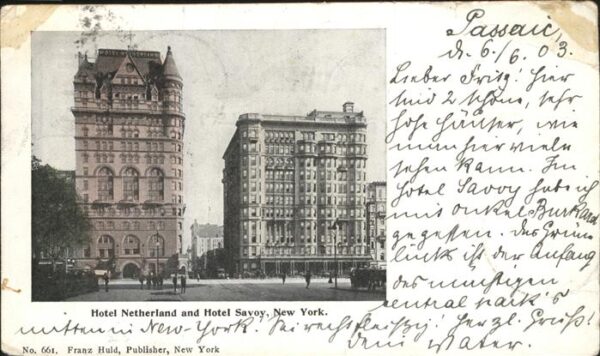 Passaic,
d. 6./6. 03.
HOTEL NETHERLAND
Lieber Fritz! Hier
sind 2 schöne, sehr
hohe Häuser, wie
man hier viele
sehen kann. Im
Hotel Savoy habe ich
mit Onkel Burkard
gegessen. Das Grün
links ist der Anfang
des mächtigen
Central Park's
Hotel Netherland and Hotel Savoy, New York.
mitten in New-York. Sei recht fleißig! Herzl. Gruß!
No. 661. Franz Huld, Publisher, New York
dein Vater.